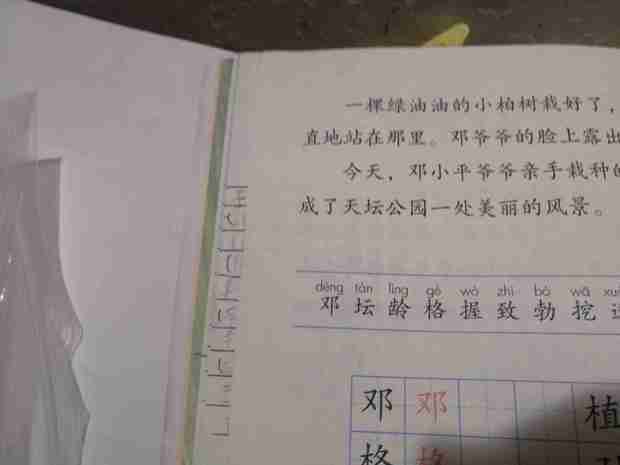 一棵绿油油的小柏树栽好了，
直地站在那里。邓爷爷的脸上露出
今天，邓小平爷爷亲手栽种的
成了天坛公园一处美丽的风景。
dèng tán líng gé wò zhì bó wā xuǎn
邓 坛 龄 格 握 致 勃 挖 选
邓 邓 植
格 格